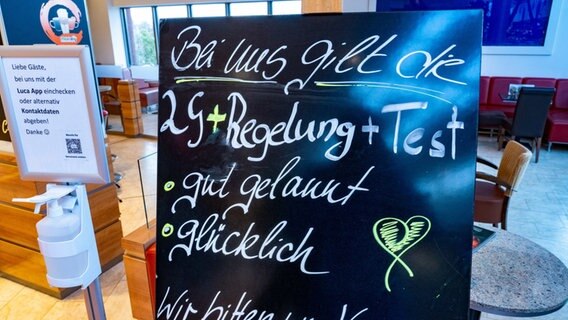 Liebe Gäste,
bei uns mit der
Luca App einchecken
oder alternativ
Kontaktdaten
abgeben!
Danke ☺
Bei uns gilt die
2G+Regelung+Test
• gut gelaunt
• glücklich
Wir bitten um